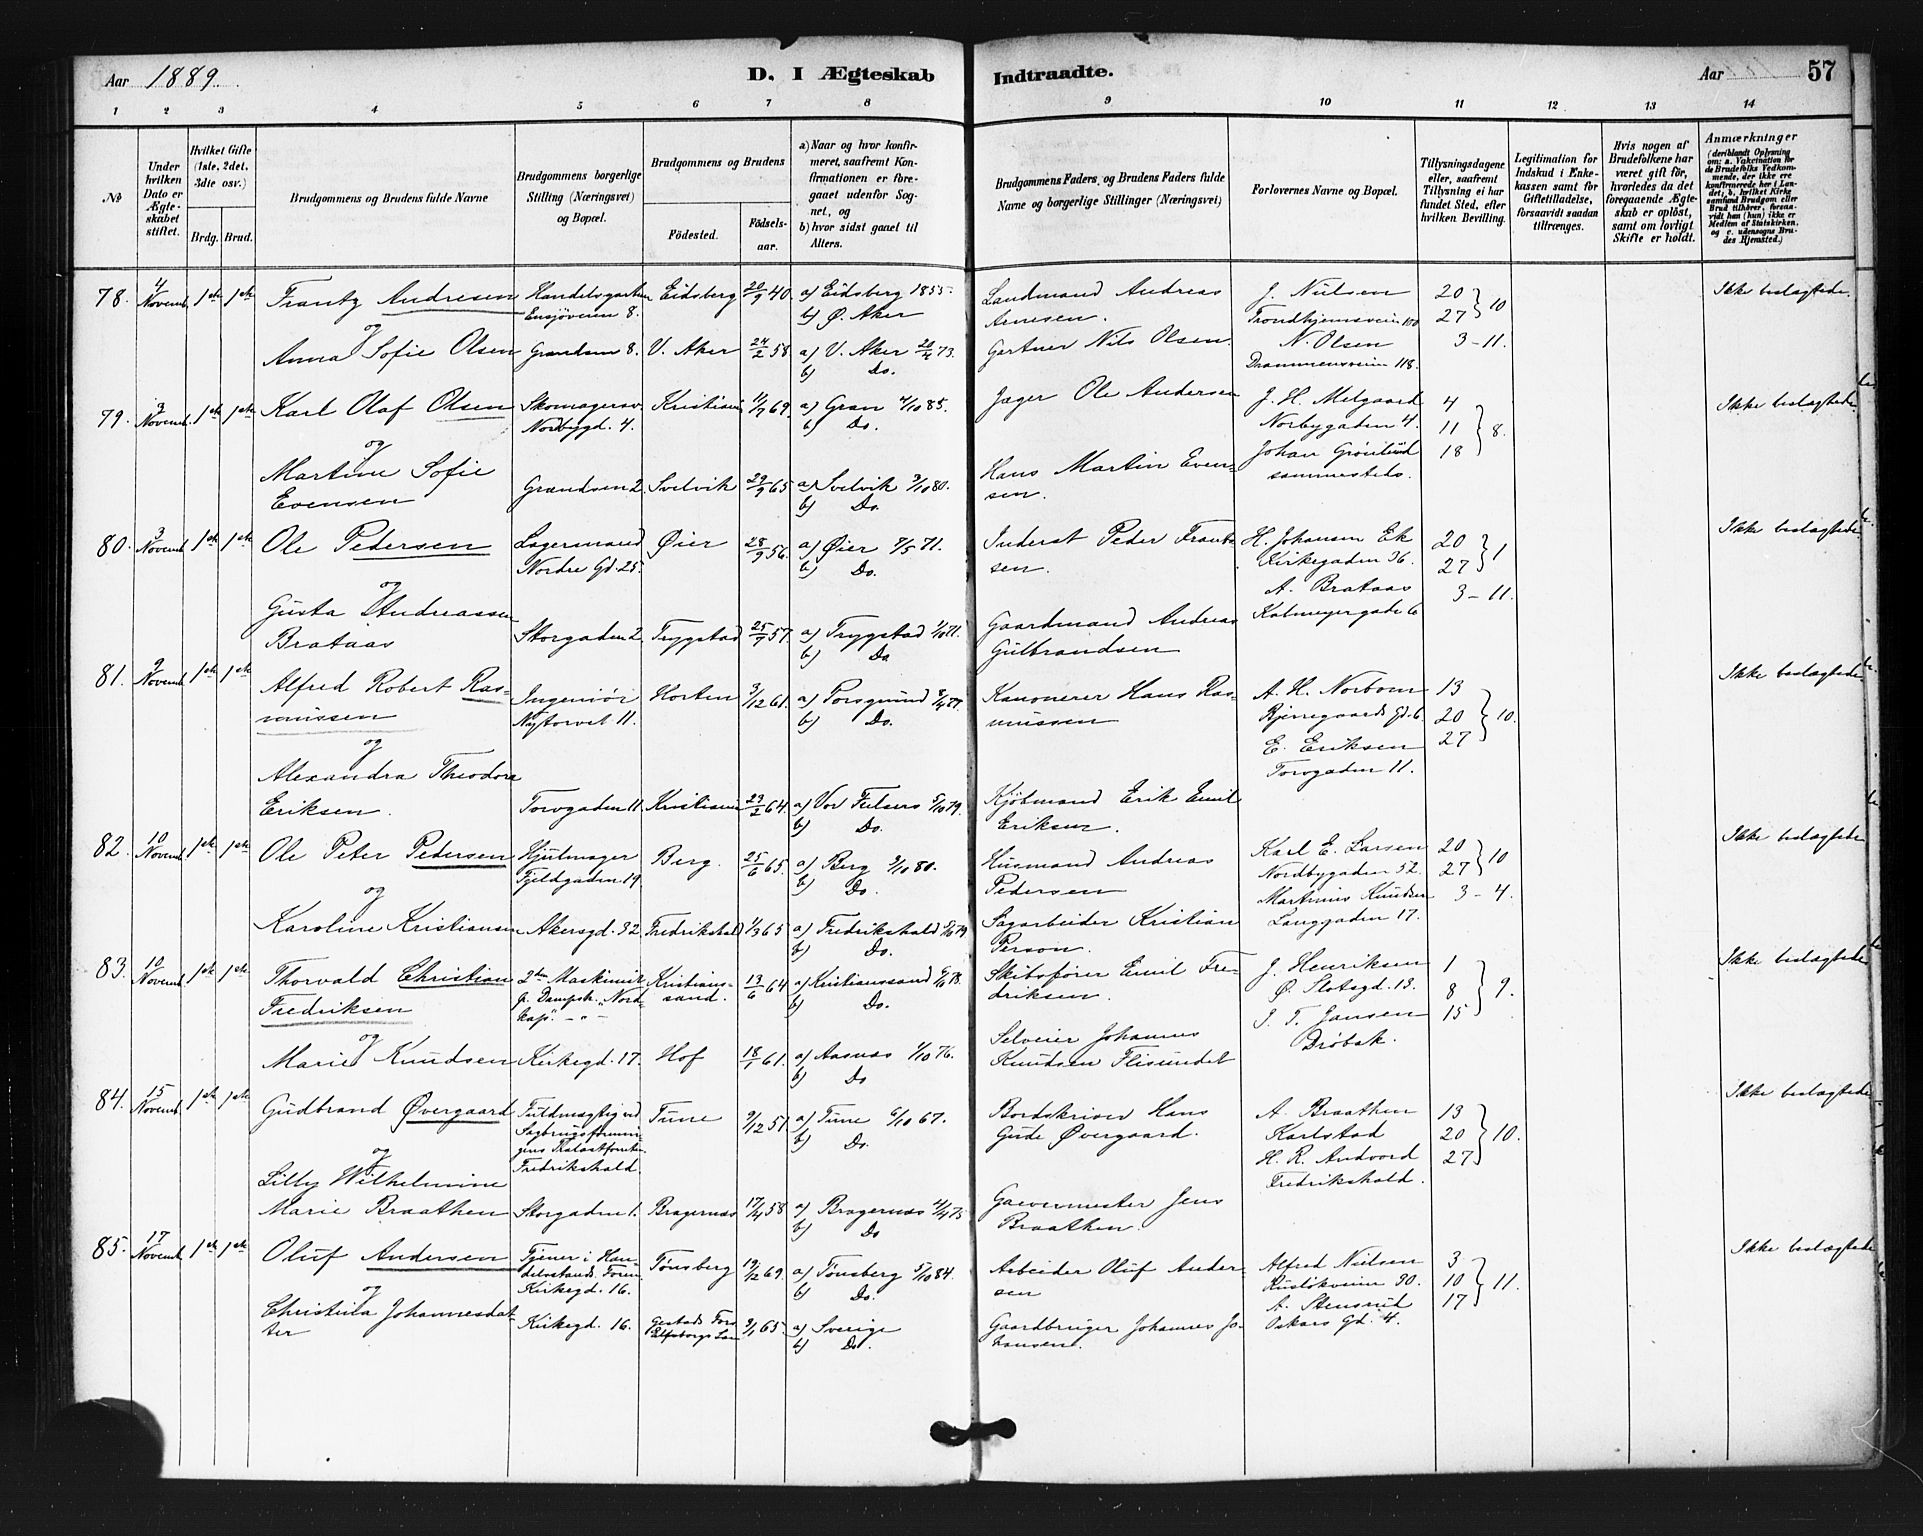 Aar 1889. D. I Ægteskab Indtraadte. Aar 57
1 2 3 4 5 6 7 8 9 10 11 12 13 14
№
Under hvilken Dato er Ægteskabet stiftet.
Hvilket Gifte (1ste, 2det, 3die osv.)
Brdg. Brud.
Brudgommens og Brudens fulde Navne
Brudgommens borgerlige Stilling (Næringsvei) og Bopæl.
Brudgommens og Brudens
Födested. Födselsaar.
a) Naar og hvor konfirmeret, saafremt Konfirmationen er foregaaet udenfor Sognet, og
b) hvor sidst gaaet til Alters.
Brudgommens Faders, og Brudens Faders fulde Navne og borgerlige Stillinger (Næringsvei)
Forlovernes Navne og Bopæl.
Tillysningsdagene eller, saafremt Tillysning ei har fundet Sted, efter hvilken Bevilling.
Legitimation for Indskud i Enkekassen samt for Giftetilladelse, forsaavidt saadan tiltrænges.
Hvis nogen af Brudefolkene har været gift før, hvorledes da det foregaaende Ægteskab er oplöst, samt om lovligt Skifte er holdt.
Anmærkninger (deriblandt Oplysning om: a. Vakcination for de Brudefolks Vedkommende, der ikke ere konfirmerede her i Landet; b. hvilket Kirkesamfund Brudgom eller Brud tilhører, forsaavidt han (hun) ikke er Medlem af Statskirken, og c. udensogns Brudes Hjemsted.)
78. 4 Novemb. 1ste 1ste Frantz Andresen Handelsgartner Eidsberg 20/9 40. a) Eidsberg 1855. Landmand Andreas J. Nielsen 20 Ikke beslægtede.
og Ensjøveien 8. b) Ø. Aker Arnesen. Trondhjemsveien 100 27 } 10
Anna Sofie Olsen Grændsen 8. V. Aker 24/2 58. a) V. Aker 20/4 73. Gartner Nils Olsen. N. Olsen 3 - 11.
b) Do. Drammensveien 118.
79. 3 Novemb. 1ste 1ste Karl Olaf Olsen Skomagersv. Kristiania 11/7 69. a) Gran 4/10 85. Jæger Ole Andersen J. H. Melgaard 4 Ikke beslægtede.
Nordbygd. 4. b) Do. Norbygaden 4. 11 } 8.
og Johan Grønlund 18
Martine Sofie Evensen Grændsen 2. Svelvik 29/9 65 a) Svelvik 3/10 80. Hans Martin Evensen. sammesteds.
b) Do.
80. 3 Novemb. 1ste 1ste Ole Pedersen Lagermand Øier 28/9 56. a) Øier 7/5 71. Inderst Peder Frantssen. H. Johansen Ek 20 Ikke beslægtede
Nordre Gd. 25. b) Do. Kirkegaden 36. 27 } 1
og A. Brataas 3 - 11.
Gusta Andreassen Brataas Storgaden 2. Trygstad 25/9 57. a) Trygstad 1/10 71. Gaardmand Andreas Gulbrandsen Kalmeyergade 6
b) Do
81. 9 Novemb. 1ste 1ste Alfred Robert Rasmussen Ingeniør Horten 3/12 61. a) Porsgrund 8/4 77. Kanonerer Hans Rasmussen A. H. Norbom 13 Ikke beslægtede
Nytorvet 11. b) Do. Bjerregaards Gd. 6 20 } 10.
og E. Eriksen 27
Alexandra Theodora Eriksen. Torvgaden 11. Kristiania 23/2 64. a) Vor Frelsers 5/10 79. Kjøbmand Erik Emil Eriksen. Torvgaden 11.
b) Do.
82. 10 Novemb. 1ste 1ste Ole Peter Pedersen Hjulmager Berg. 25/6 65. a) Berg 3/10 80. Husmand Andreas Pedersen Karl E. Larsen 20 Ikke beslægtede
Fjeldgaden 19. b) Do. Nordbygaden 52. 27 } 10
og Martinus Knudsen 3 - 4.
Karoline Kristiansen Akersgd. 32. Fredrikshald 1/3 65 a) Fredrikshald 5/10 79 Sagarbeider Kristian Person. Langgaden 17.
b) Do.
83. 10 Novemb. 1ste 1ste Thorvald Christian Fredriksen 2den Maskinist Kristianssand. 13/6 64 a) Kristianssand 6/10 78. Skibsfører Emil Fredriksen. J. Henriksen 1 Ikke beslægtede
p. Dampsk. "Nordkap". - " - b) Do. Ø. Slotsgd. 13. 8 } 9.
og J. T. Jansen 15
Marie Knudsen Kirkegd. 17. Hof 18/1 61. a) Aasnæs 1/10 76. Selveier Johannes Knudsen Flisundet Drøbak.
b) Do
84. 15 Novemb. 1ste 1ste Gudbrand Øvergaard Fuldmægtig ved Tune 9/12 51. a) Tune 6/10 67. Bordskriver Hans Gude Øvergaard. A. Braathen 13 Ikke beslægtede
b) Do. Karlstad 20 } 10.
og Fredrikshald H. R. Andvord 27
Lilly Wilhelmine Marie Braathen Storgaden 1. Bragernæs 17/4 58 a) Bragernæs 4/4 75 Gevermester Jens Braathen. Fredrikshald.
b) Do
85. 17 Novemb. 1ste 1ste Oluf Andersen Tjener i Handelsstands Foren. Tønsberg 19/12 69. a) Tønsberg 5/10 84. Arbeider Oluf Andersen Alfred Nielsen 3 Ikke beslægtede
Kirkegd. 16. b) Do. Rusløkveien 30. 10 } 11.
og A. Stensrud 17
Christina Johannesdatter Kirkegd. 16. Elfsborgs Län 9/1 65. a) Sverige Gaardbruger Johannes Johansen. Oskars Gd. 4.
b) Do.